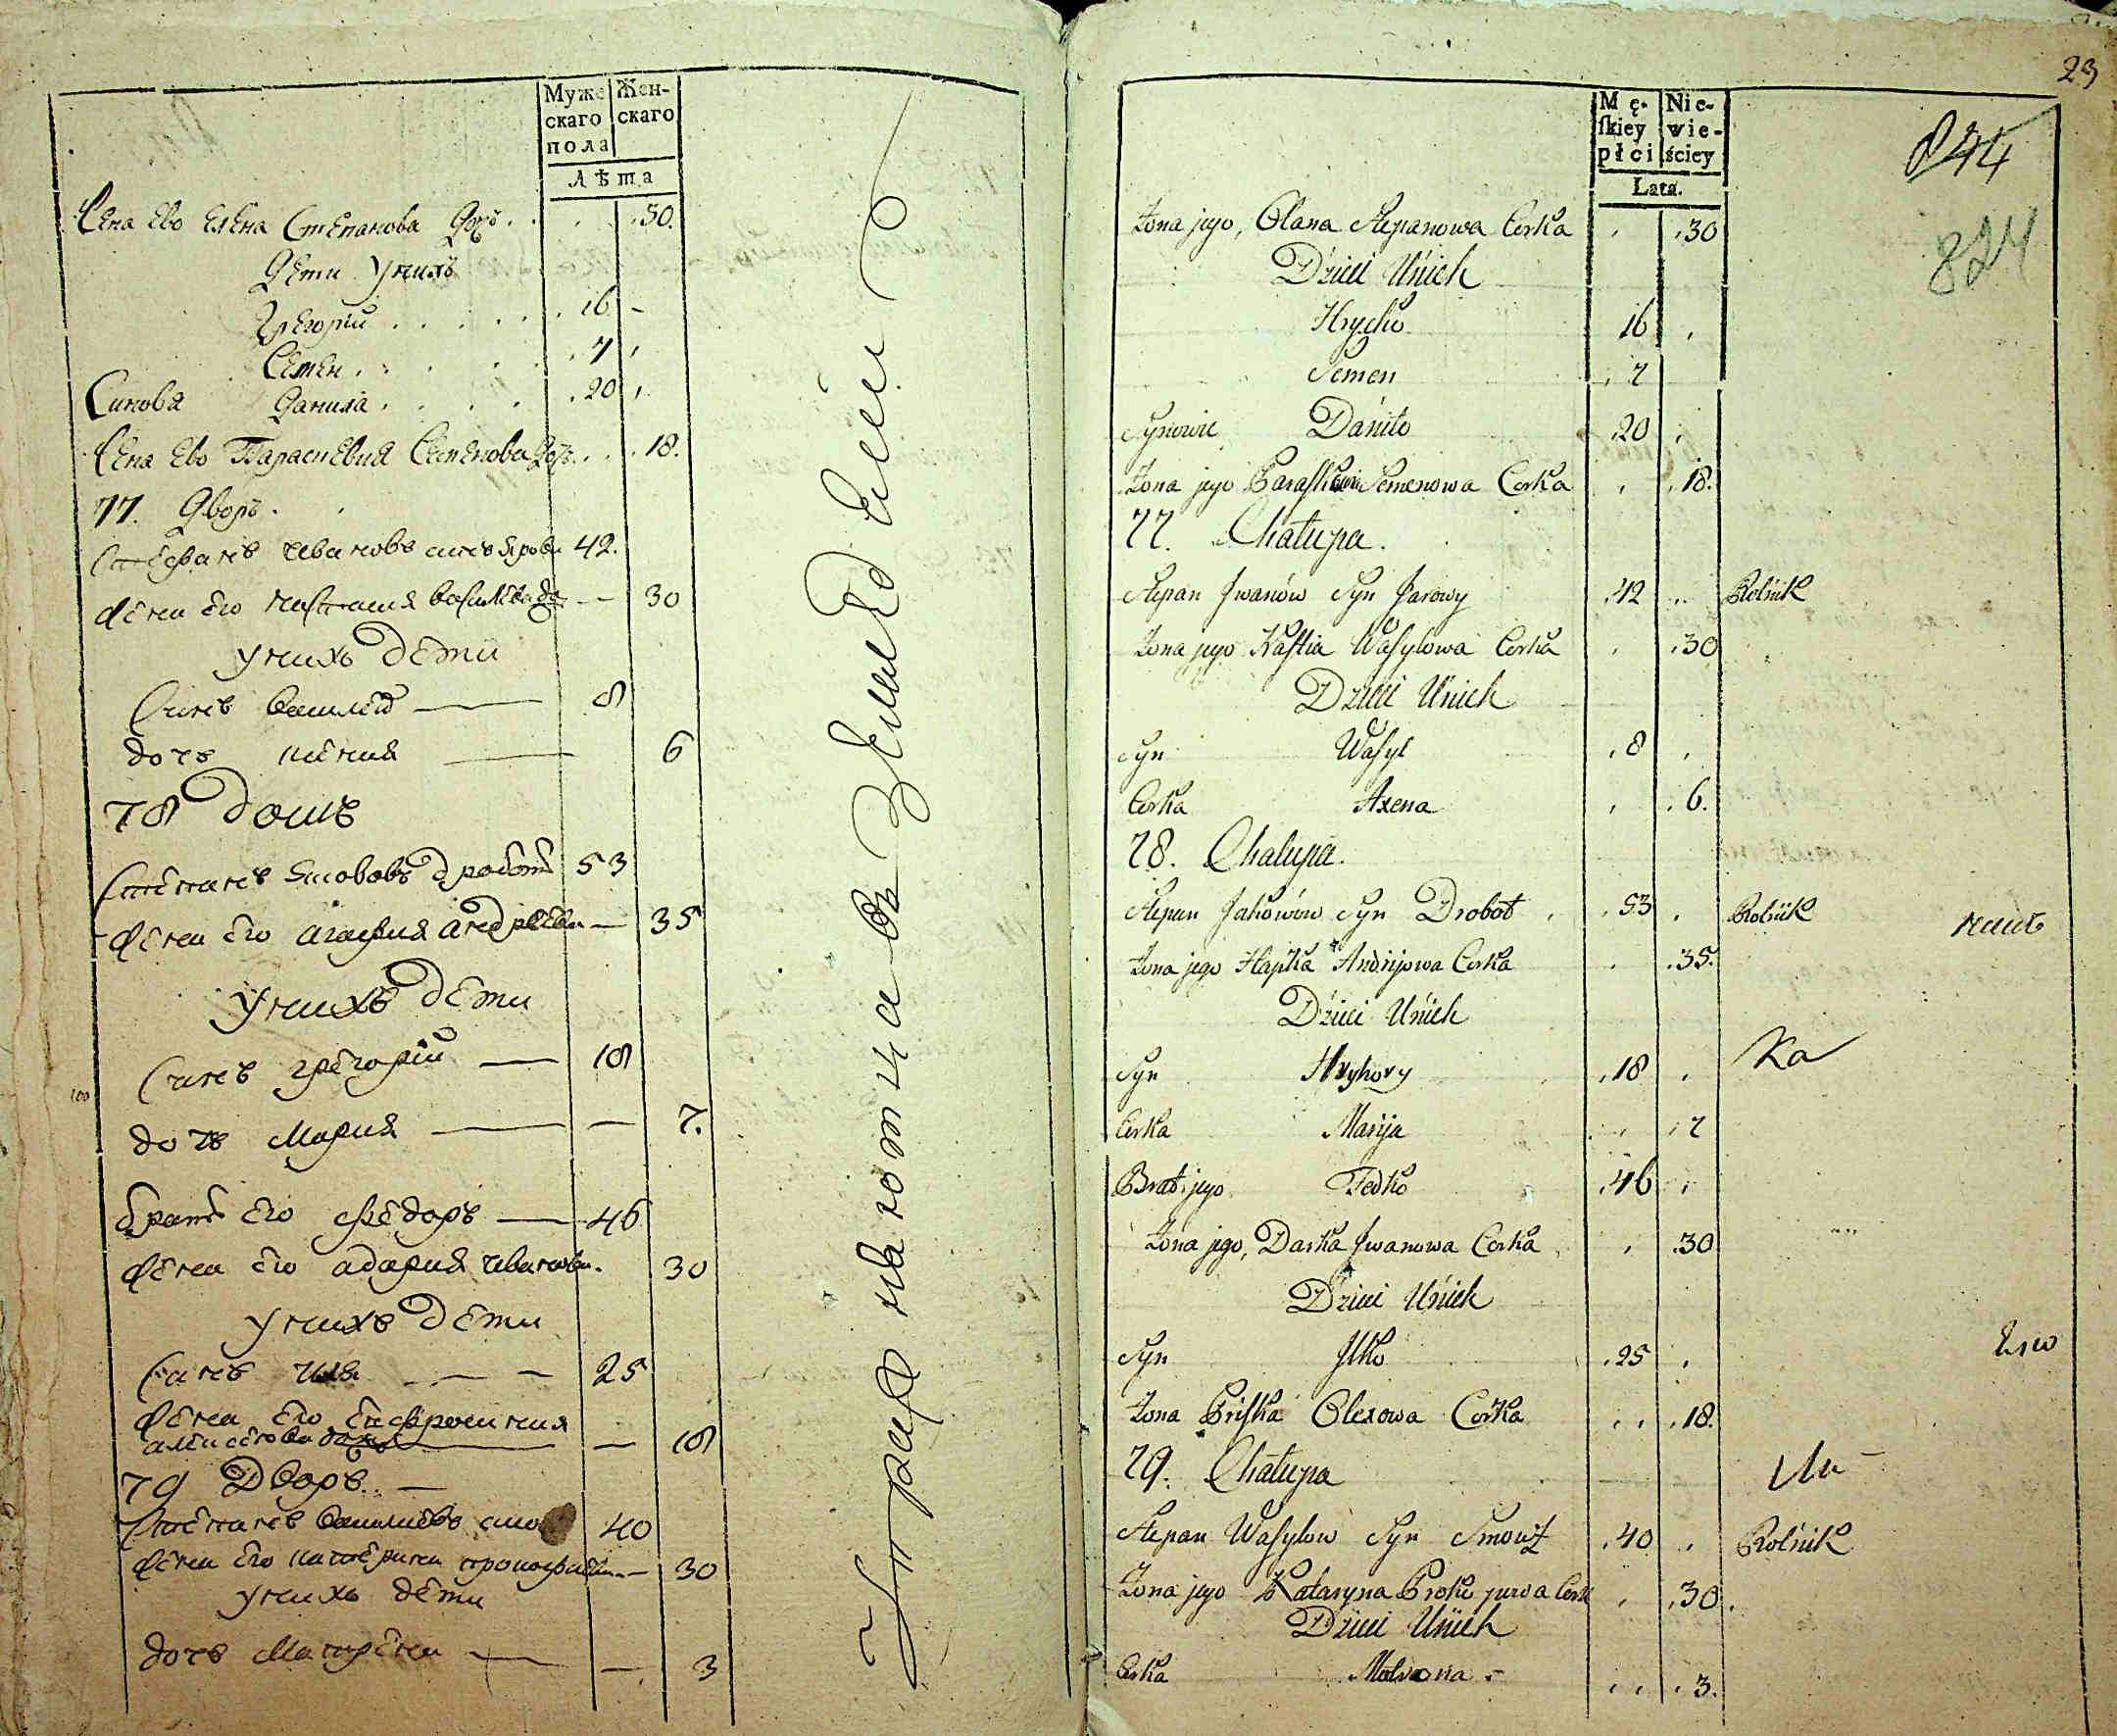 Муже Жен-
скаго скаго
пола
Лѣта
Жена Ево Елена Степанова Дочь . . . 30.
Дети Унихъ
Григорiи . . . . . 16 -
Семен . . . . 7
Синова Данила . . . . 20
Жена Ево Параскевия Семенова Дочь . . . 18.
77. Дворъ.
Стефанъ Ивановъ синъ Ярови 42.
Жена Его Настасия Василева до: — 30
Унихъ Дети
Синъ Василей — 8
дочъ 6
78 домъ
Степанъ Якововъ дробот 53
Жена Его Агафия Андреева — 35
Унихъ Дети
Синъ Григорiй — 18
дочъ Мария — — 7.
братъ Его Федоръ — 46
Жена Его адария Иванова. 30
Унихъ Дети
Синъ Илия — — 25
Жена Его Ефросиния
алексеева дочь — — 18
79 Дворъ. —
Степанъ Василевъ 40
Жена Его Катерина прокофиева — 30
Унихъ дети
дочъ Матрена — — 3
23
Mę- Nie-
ſkiey wie-
płci ściey
Lata.
844
824
Żona jego, Olana Stepanowa Corka . .30
Dzieci Unich
Hryćko 16 .
Semen . 7
Synowie Daniło .20 .
Żona jego Paraſkewia Semenowa Corka . .18.
77. Chałupa.
Stepan Jwanów Syn Jarowy .42 .. Rolnik
Żona jego Naſtia Waſylowa Corka . .30
Dzieci Unich
Syn Waſyl .8 .
Corka Axena . .6.
78. Chałupa.
Stepan Jakowów Syn Drobot . .53 . Rolnik
Żona jego Hapka Andrijowa Corka . .35.
Dzieci Unich
Syn Hryhory .18 .
Ka
Corka Marija . .7
Brat jego Fedko .46 .
Żona jego, Darka Jwanowa Corka . .30
Dzieci Unich
Syn Jlko .25 .
Żona Priſka Olexowa Corka . . .18.
79. Chałupa
Stepan Waſylow Syn .40 . Rolnik
Żona jego Kataryna Corka . .30.
Dzieci Unich
Corka Motrona - . . .3.